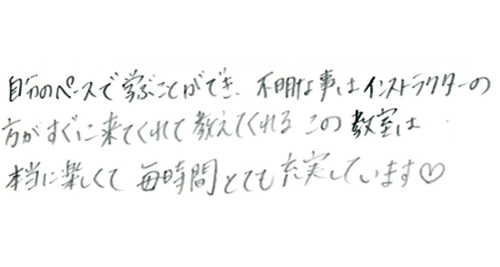 自分のペースで学ぶことができ、不明な事はインストラクターの
方がすぐに来てくれて教えてくれるこの教室は
本当に楽しくて毎時間とても充実しています♡